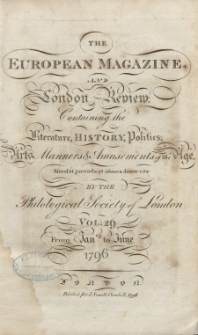 THE
EUROPEAN MAGAZINE,
AND
London Review;
Containing the
Literature, HISTORY, Politics,
Arts, Manners & Amusements of the Age.
Simul et jucunda et idonea dicere vitæ
BY THE
Philological Society of London
VOL. 29
From Jany. to June
1796
LONDON
Printed for J. Sewell Cornhill, 1796